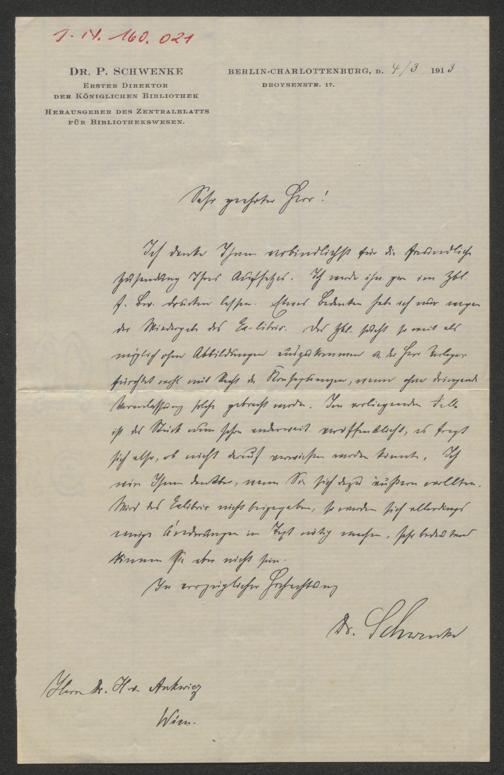 J. N. 160.021
DR. P. SCHWENKE
ERSTER DIREKTOR
DER KÖNIGLICHEN BIBLIOTHEK
HERAUSGEBER DES ZENTRALBLATTS
FÜR BIBLIOTHEKSWESEN.
BERLIN-CHARLOTTENBURG, D. 4/3 1913
DROYSENSTR. 17.
Sehr geehrter Herr!
Ich danke Ihnen verbindlichst für die freundliche
Zusendung Ihres Aufsatzes. Ich werde ihn gern im Zbl.
f. Bw. drucken lassen. Etwas Bedenken hab ich nur wegen
der Wiedergabe des Ex-libris. Das Zbl. sucht so weit als
möglich ohne Abbildungen auszukommen u. der Herr Verleger
fürchtet wohl mit Recht die Konsequenzen, wenn ohne dringende
Veranlassung solche gebracht werden. Im vorliegenden Falle
ist das Stück nun schon anderweit veröffentlicht, es fragt
sich also, ob nicht darauf verwiesen werden könnte. Ich
wäre Ihnen dankbar, wenn Sie sich dazu äußern wollten.
Wird das Exlibris nicht beigegeben, so werden sich allerdings
einige Änderungen im Text nötig machen, sehr bedeutend
können sie aber nicht sein.
In vorzüglicher Hochachtung
Dr. Schwenke
Herrn Dr. H. v. Ankwicz
Wien.